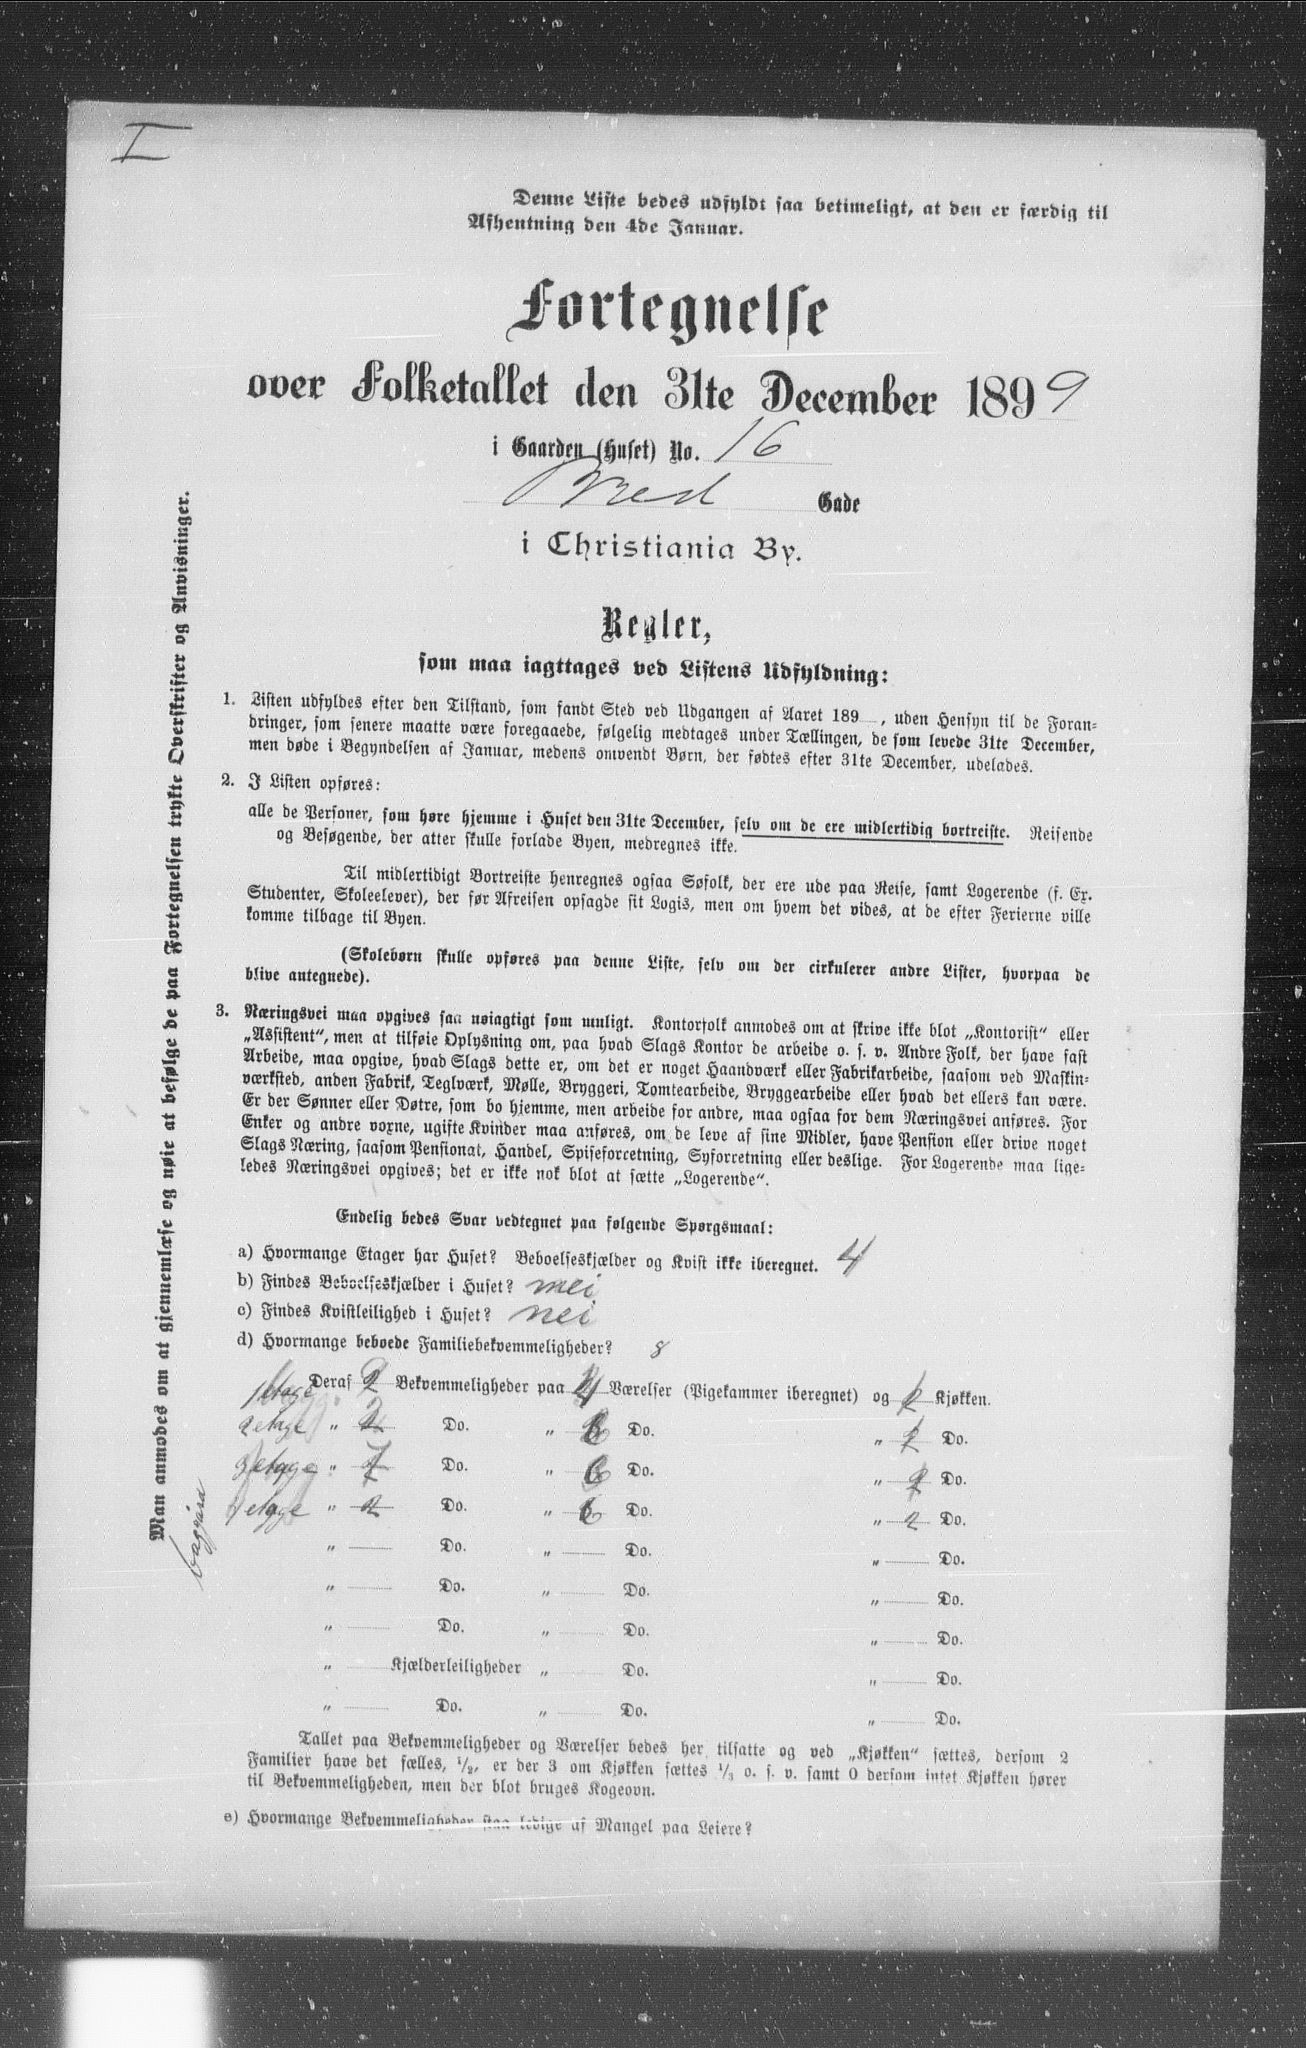 I
Denne Liste bedes udfyldt saa betimeligt, at den er færdig til
Afhentning den 4de Januar.
Fortegnelse
over Folketallet den 31te December 1899
i Gaarden (Huset) No. 16
Bred Gade
i Christiania By.
Regler,
som maa iagttages ved Listens Udfyldning:
1. Listen udfyldes efter den Tilstand, som fandt Sted ved Udgangen af Aaret 189 , uden Hensyn til de Foran-
dringer, som senere maatte være foregaaede, følgelig medtages under Tællingen, de som levede 31te December,
men døde i Begyndelsen af Januar, medens omvendt Børn, der fødtes efter 31te December, udelades.
2. I Listen opføres:
alle de Personer, som høre hjemme i Huset den 31te December, selv om de ere midlertidig bortreiste. Reisende
og Besøgende, der atter skulle forlade Byen, medregnes ikke.
Til midlertidigt Bortreiste henregnes ogsaa Søfolk, der ere ude paa Reise, samt Logerende (f. Ex.
Studenter, Skoleelever), der før Afreisen opsagde sit Logis, men om hvem det vides, at de efter Ferierne ville
komme tilbage til Byen.
(Skolebørn skulle opføres paa denne Liste, selv om der cirkulerer andre Lister, hvorpaa de
blive antegnede).
3. Næringsvei maa opgives saa nøiagtigt som muligt. Kontorfolk anmodes om at skrive ikke blot „Kontorist“ eller
„Assistent“, men at tilføie Oplysning om, paa hvad Slags Kontor de arbeide o. s. v. Andre Folk, der have fast
Arbeide, maa opgive, hvad Slags dette er, om det er noget Haandværk eller Fabrikarbeide, saasom ved Maskin-
værksted, anden Fabrik, Teglværk, Mølle, Bryggeri, Tomtearbeide, Bryggearbeide eller hvad det ellers kan være.
Er der Sønner eller Døtre, som bo hjemme, men arbeide for andre, maa ogsaa for dem Næringsvei anføres. For
Enker og andre voxne, ugifte Kvinder maa anføres, om de leve af sine Midler, have Pension eller drive noget
Slags Næring, saasom Pensionat, Handel, Spiseforretning, Syforretning eller deslige. For Logerende maa lige-
ledes Næringsvei opgives; det er ikke nok blot at sætte „Logerende“.
Endelig bedes Svar vedtegnet paa følgende Spørgsmaal:
a) Hvormange Etager har Huset? Beboelseskjælder og Kvist ikke iberegnet. 4
b) Findes Beboelseskjælder i Huset? nei
c) Findes Kvistleilighed i Huset? nei
d) Hvormange beboede Familiebekvemmeligheder? 8
1 etage Deraf 2 Bekvemmeligheder paa 4 Værelser (Pigekammer iberegnet) og Kjøkken.
2 etage „ 2 Do. „ Do. „ Do.
3 etage „ Do. „ 6 Do. „ 2 Do.
etage „ 2 Do. „ 6 Do. „ 2 Do.
„ Do. „ Do. „ Do.
„ Do. „ Do. „ Do.
„ Do. „ Do. „ Do.
„ Kjælderleiligheder „ Do. „ Do.
„ Do. „ Do. „ Do.
Tallet paa Bekvemmeligheder og Værelser bedes her tilsatte og ved „Kjøkken“ sættes, dersom 2
Familier have det fælles, 1/2, er der 3 om Kjøkken sættes 1/3 o. s. v. samt 0 dersom intet Kjøkken hører
til Bekvemmeligheden, men der blot bruges Kogeovn.
e) Hvormange Bekvemmeligheder staa ledige af Mangel paa Leiere?
Man anmodes om at gjennemlæse og nøie at befølge de paa Fortegnelsen trykte Overskrifter og Anvisninger.
baggård